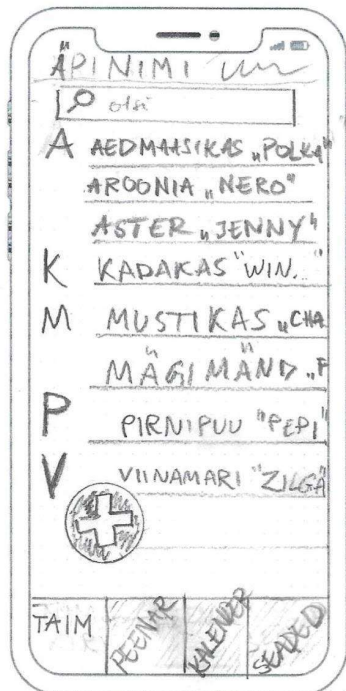 ÄPI NIMI
otsi
A AEDMAASIKAS „POLKA"
AROONIA „NERO"
ASTER „JENNY"
K KADAKAS "WIN..."
M MUSTIKAS „CHA
MÄGIMÄND „F
P PIRNIPUU "PEPI"
V VIINAMARI "ZILGA"
TAIM PEENAR KALENDER SEADED